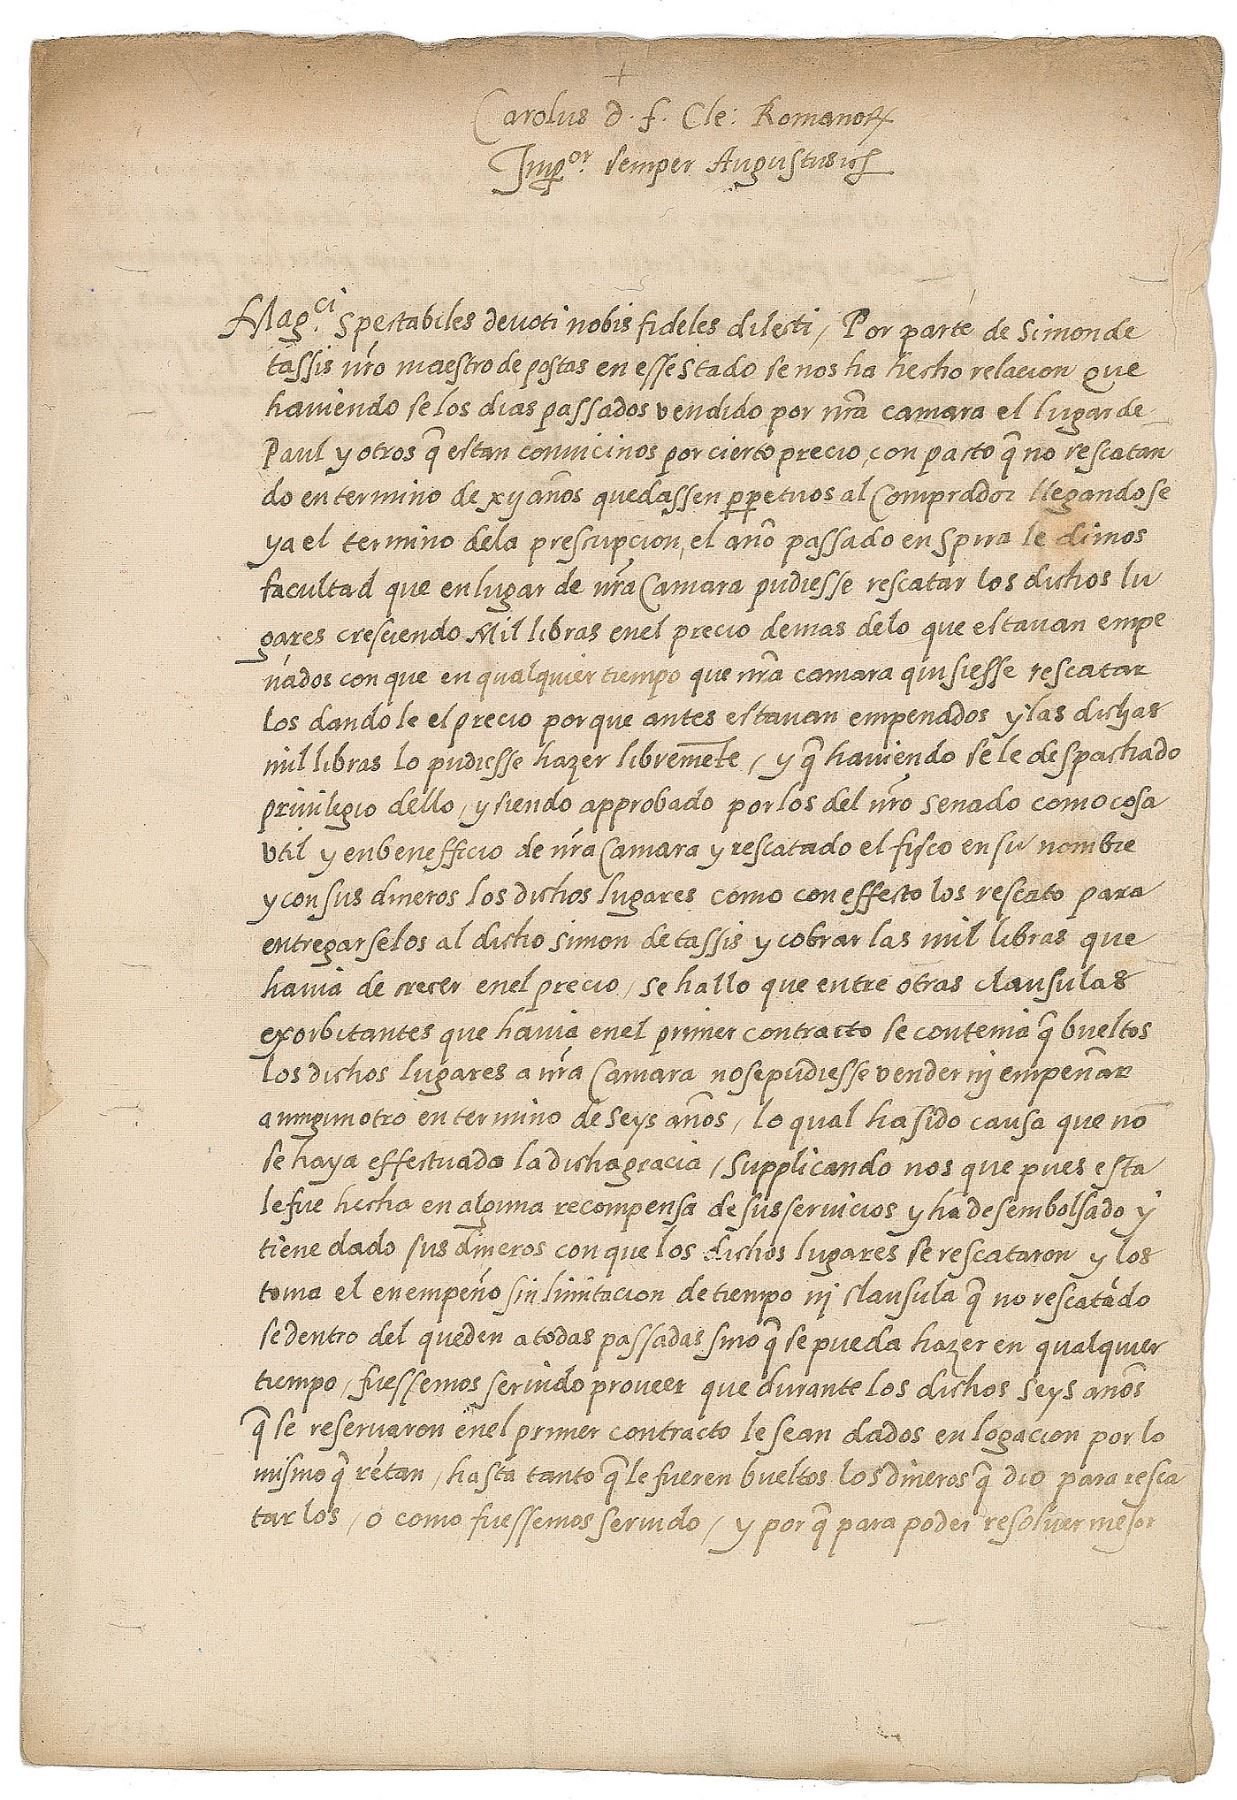 +
Carolus d. f. Cle: Romanoꝝ
Imp.or semper Augustus
Mag.ci spectabiles devoti nobis fideles dilecti / Por parte de Simon de
tassis nr̃o maestro de postas en esse stado se nos ha hecho relacion que
haviendo se los dias passados vendido por nr̃a camara el lugar de
Paul y otros q̃ estan convicinos por cierto precio, con pacto q̃ no rescatan
do en termino de xij años quedassen ꝑpetuos al Comprador llegando se
ya el termino dela prescripcion, el año passado en spira le dimos
facultad que en lugar de nr̃a Camara pudiesse rescatar los dichos lu
gares cresciendo Mil libras enel precio demas delo que estavan empe
ñados con que en qualquier tiempo que nr̃a camara quisiesse rescatar
los dando le el precio por que antes estavan empeñados y las dichas
mil libras lo pudiesse hazer libremẽte / y q̃ haviendo se le despachado
privilegio dello / y siendo approbado por los del nr̃o senado como cosa
util y en benefficio de nr̃a Camara y rescatado el fisco en su nombre
y con sus dineros los dichos lugares como con effecto los rescato para
entregar selos al dicho simon de tassis y cobrar las mil libras que
havia de crecer enel precio / se hallo que entre otras clausulas
exorbitantes que havia enel primer contracto se contenia q̃ bueltos
los dichos lugares a nr̃a Camara no se pudiesse vender nj empeñar
a ningun otro en termino de seys años / lo qual ha sido causa que no
se haya effectuado la dicha gracia / supplicando nos que pues esta
le fue hecha en alguna recompensa de sus servicios y ha desembolsado y
tiene dado sus dineros con que los dichos lugares se rescataron y los
toma el en empeño sin limitacion de tiempo nj clausula q̃ no rescatãdo
se dentro del queden a todas passadas sino q̃ se pueda hazer en qualquier
tiempo / fuessemos servido proveer que durante los dichos seys años
q̃ se reservaron enel primer contracto le sean dados en logacion por lo
mismo q̃ rẽtan / hasta tanto q̃ le fueren bueltos los dineros q̃ dio para resca
tar los / o como fuessemos servido / y por q̃ para poder resolver mejor